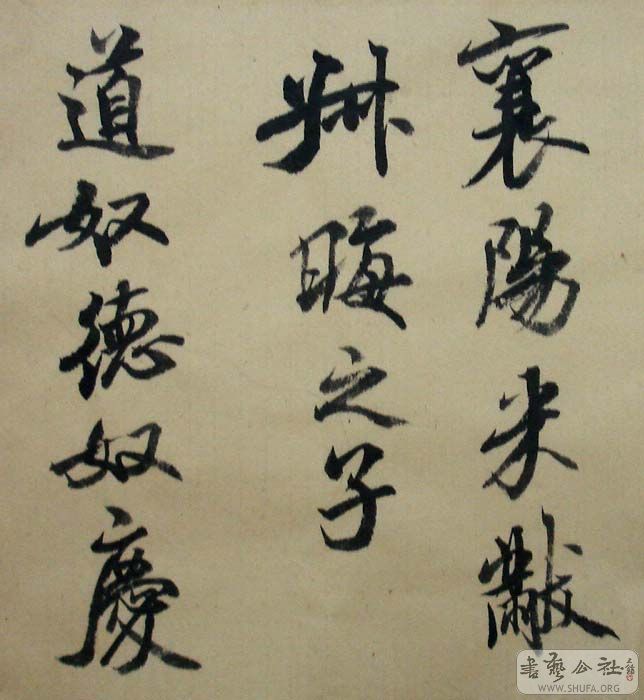 襄陽米黻
叔晦之子
道奴德奴慶
書藝公社
WWW.SHUFA.ORG